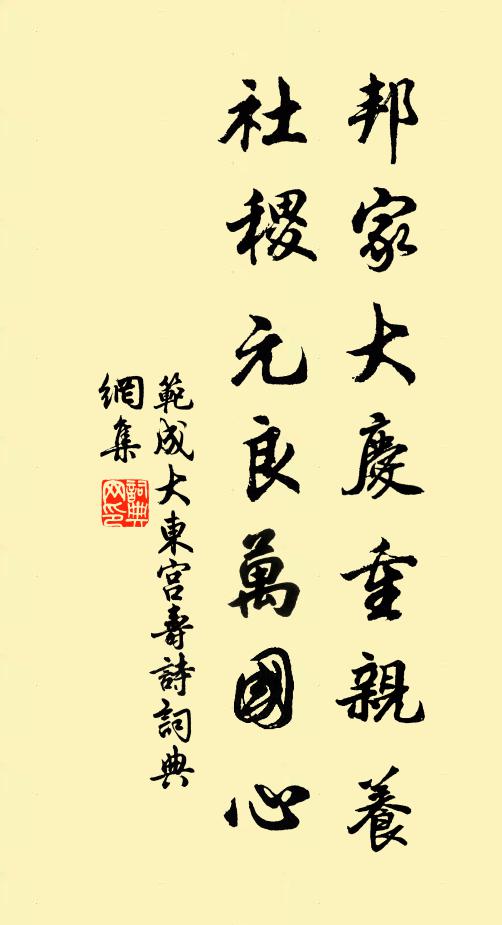 邦家大慶重親養
社稷元良萬國心
範成大東宮壽詩詞典
網集
詞典網印